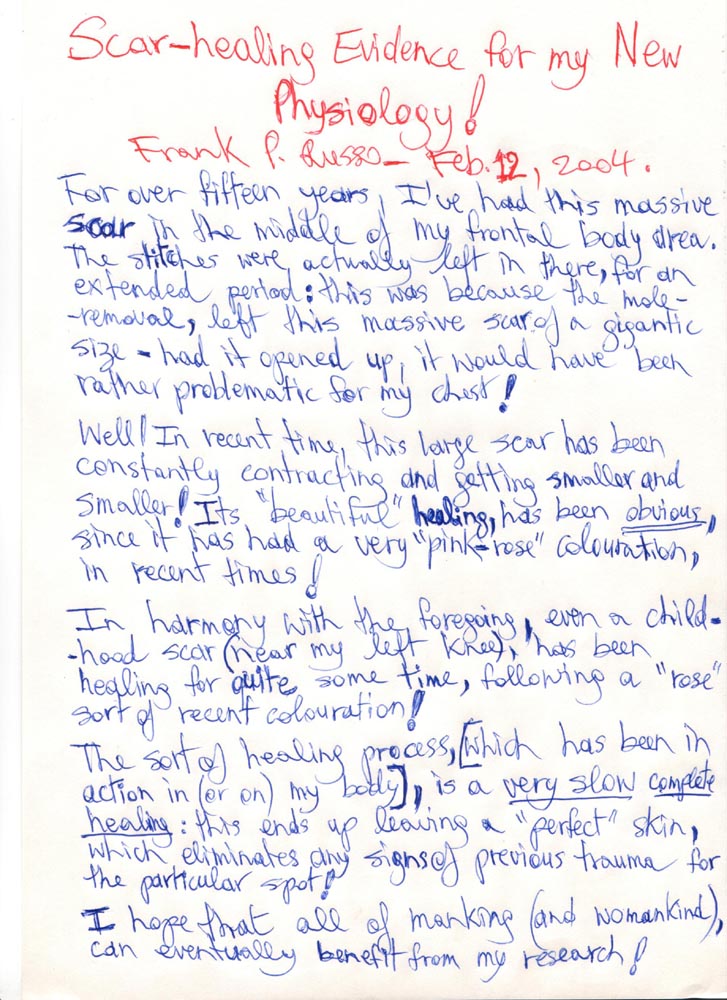 Scar-healing Evidence for my New
Physiology!
Frank P. Russo - Feb. 12, 2004.
For over fifteen years, I've had this massive
scar in the middle of my frontal body area.
The stitches were, actually left in there, for an
extended period: this was because the mole-
-removal, left this massive scar of a gigantic
size - had it opened up, it would have been
rather problematic for my chest!
Well! In recent time, this large scar has been
constantly contracting and getting smaller and
smaller! Its "beautiful" healing, has been obvious,
since it has had a very "pink-rose" colouration,
in recent times!
In harmony with the foregoing, even a child-
-hood scar (near my left knee), has been
healing for quite some time, following a "rose"
sort of recent colouration!
The sort of healing process, [which has been in
action in (or on) my body], is a very slow complete
healing: this ends up leaving a "perfect" skin,
which eliminates any signs of previous trauma for
the particular spot!
I hope that all of manking (and womankind),
can eventually benefit from my research!